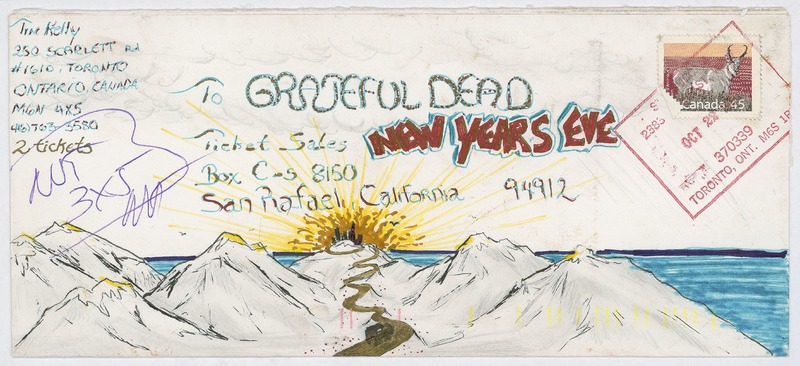 Tric Kelly
250 SCARLETT Rd
#1610, TORONTO
ONTARIO, CANADA
M6N 4X5
2 tickets
3x5
To GRATEFUL DEAD
NEW YEARS EVE
Ticket Sales
Box C-S 8160
San Rafael, California 94912
Canada 45
2383
OCT 22
370339
TORONTO, ONT. M6S 1P